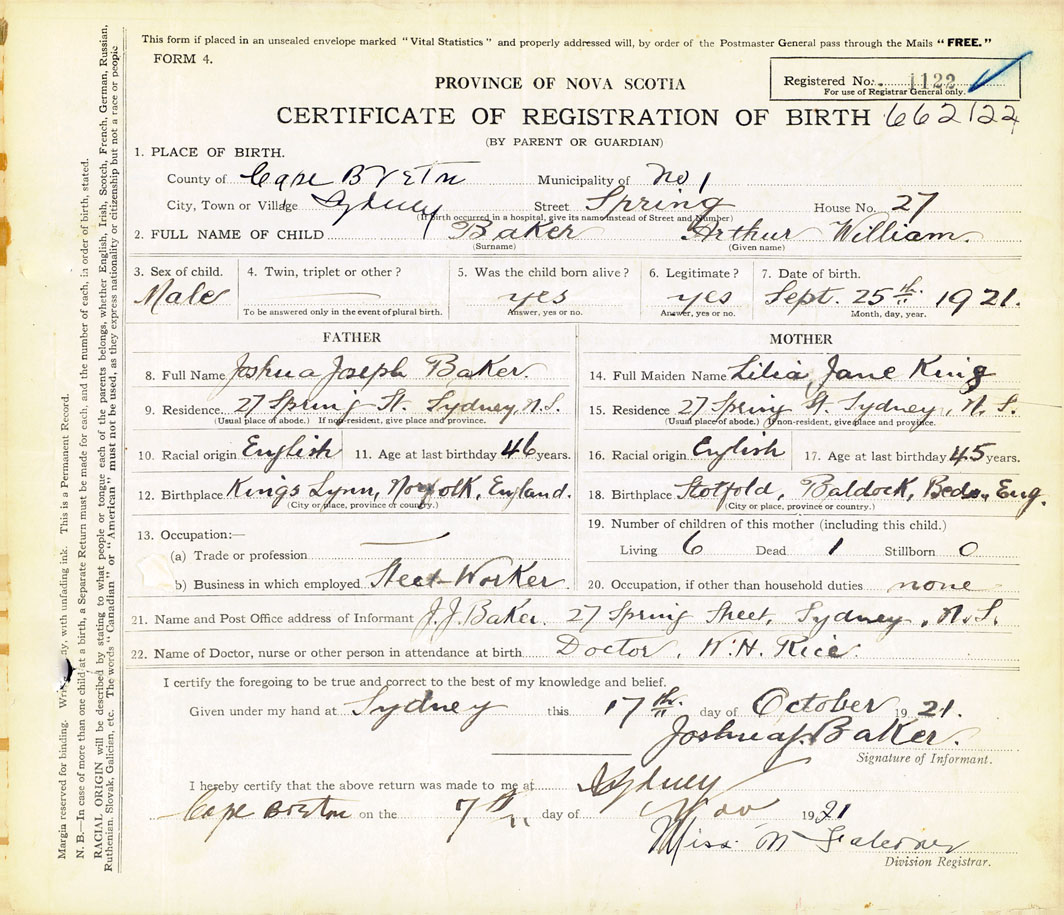 This form if placed in an unsealed envelope marked "Vital Statistics" and properly addressed will, by order of the Postmaster General pass through the Mails "FREE."
FORM 4.
Registered No. 1122
For use of Registrar General only.
PROVINCE OF NOVA SCOTIA
CERTIFICATE OF REGISTRATION OF BIRTH 662122
(BY PARENT OR GUARDIAN)
1. PLACE OF BIRTH.
County of Cape Breton Municipality of No 1
City, Town or Village Sydney Street Spring House No. 27
(If birth occurred in a hospital, give its name instead of Street and Number)
2. FULL NAME OF CHILD Baker Arthur William.
(Surname) (Given name)
3. Sex of child. 4. Twin, triplet or other? 5. Was the child born alive? 6. Legitimate? 7. Date of birth.
Male yes yes Sept. 25th 1921.
To be answered only in the event of plural birth. Answer, yes or no. Answer, yes or no. Month, day, year.
FATHER MOTHER
8. Full Name Joshua Joseph Baker. 14. Full Maiden Name Lilia Jane King
9. Residence. 27 Spring St. Sydney, N.S. 15. Residence 27 Spring St. Sydney, N.S.
(Usual place of abode.) If non-resident, give place and province. (Usual place of abode.) If non-resident, give place and province.
10. Racial origin English 11. Age at last birthday 46 years. 16. Racial origin English 17. Age at last birthday 45 years.
12. Birthplace Kings Lynn, Norfolk, England. 18. Birthplace Stotfold, Baldock, Beds., Eng.
(City or place, province or country.) (City or place, province or country.)
13. Occupation:— 19. Number of children of this mother (including this child.)
(a) Trade or profession Living 6 Dead 1 Stillborn 0
b) Business in which employed. Steel-Worker 20. Occupation, if other than household duties none
21. Name and Post Office address of Informant J.J. Baker. 27 Spring Street, Sydney, N.S.
22. Name of Doctor, nurse or other person in attendance at birth Doctor. W.H. Rice.
I certify the foregoing to be true and correct to the best of my knowledge and belief.
Given under my hand at Sydney this 17th day of October 1921.
Joshua J. Baker.
Signature of Informant.
I hereby certify that the above return was made to me at Sydney
Cape Breton on the 7th day of Nov 1921
Miss M
Division Registrar.
Margin reserved for binding. with unfading ink. This is a Permanent Record.
N. B.—In case of more than one child at a birth, a Separate Return must be made for each, and the number of each, in order of birth, stated.
RACIAL ORIGIN will be described by stating to what people or tongue each of the parents belongs, whether English, Irish, Scotch, French, German, Russian,
Ruthenian, Slovak, Galician, etc. The words "Canadian" or "American" must not be used, as they express nationality or citizenship but not a race or people